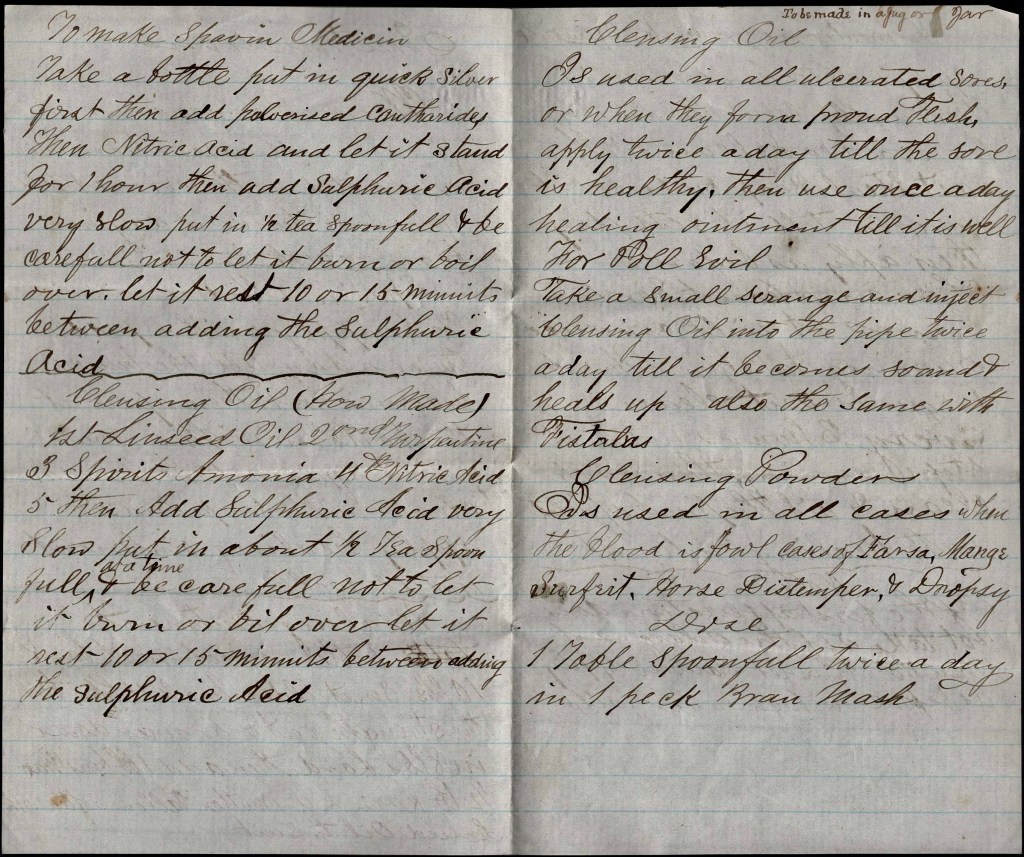 To make Spavin Medicin
Take a bottle put in quick Silver
first then add pulverised Cantharides
Then Nitric Acid and let it stand
for 1 hour then add Sulphuric Acid
very slow put in ½ tea Spoonfull & be
carefull not to let it burn or boil
over. let it rest 10 or 15 minuits
between adding the Sulphuric
Acid
Clensing Oil (How Made)
1st Linseed Oil 2ond Turpentine
3 Spirits Amonia 4th Nitric Acid
5 then Add Sulphuric Acid very
Slow put in about ½ Tea Spoon
at a time
full & be care full not to let
it burn or bil over let it
rest 10 or 15 minuits between adding
the Sulphuric Acid
To be made in a Jug or Jar
Clensing Oil
Is used in all ulcerated Sores,
or when they form proud Flesh,
apply twice a day till the sore
is healthy, then use once a day
healing ointment till it is well
For Poll Evil
Take a small serange and inject
Clensing Oil into the pipe twice
a day till it becomes sound &
heals up also the same with
Fistulas
Clensing Powders
Is used in all cases when
the blood is fowl cases of Farsa, Mange
Surfrit, Horse Distemper, & Dropsy
Dose
1 Table spoonfull twice a day
in 1 peck Bran Mash